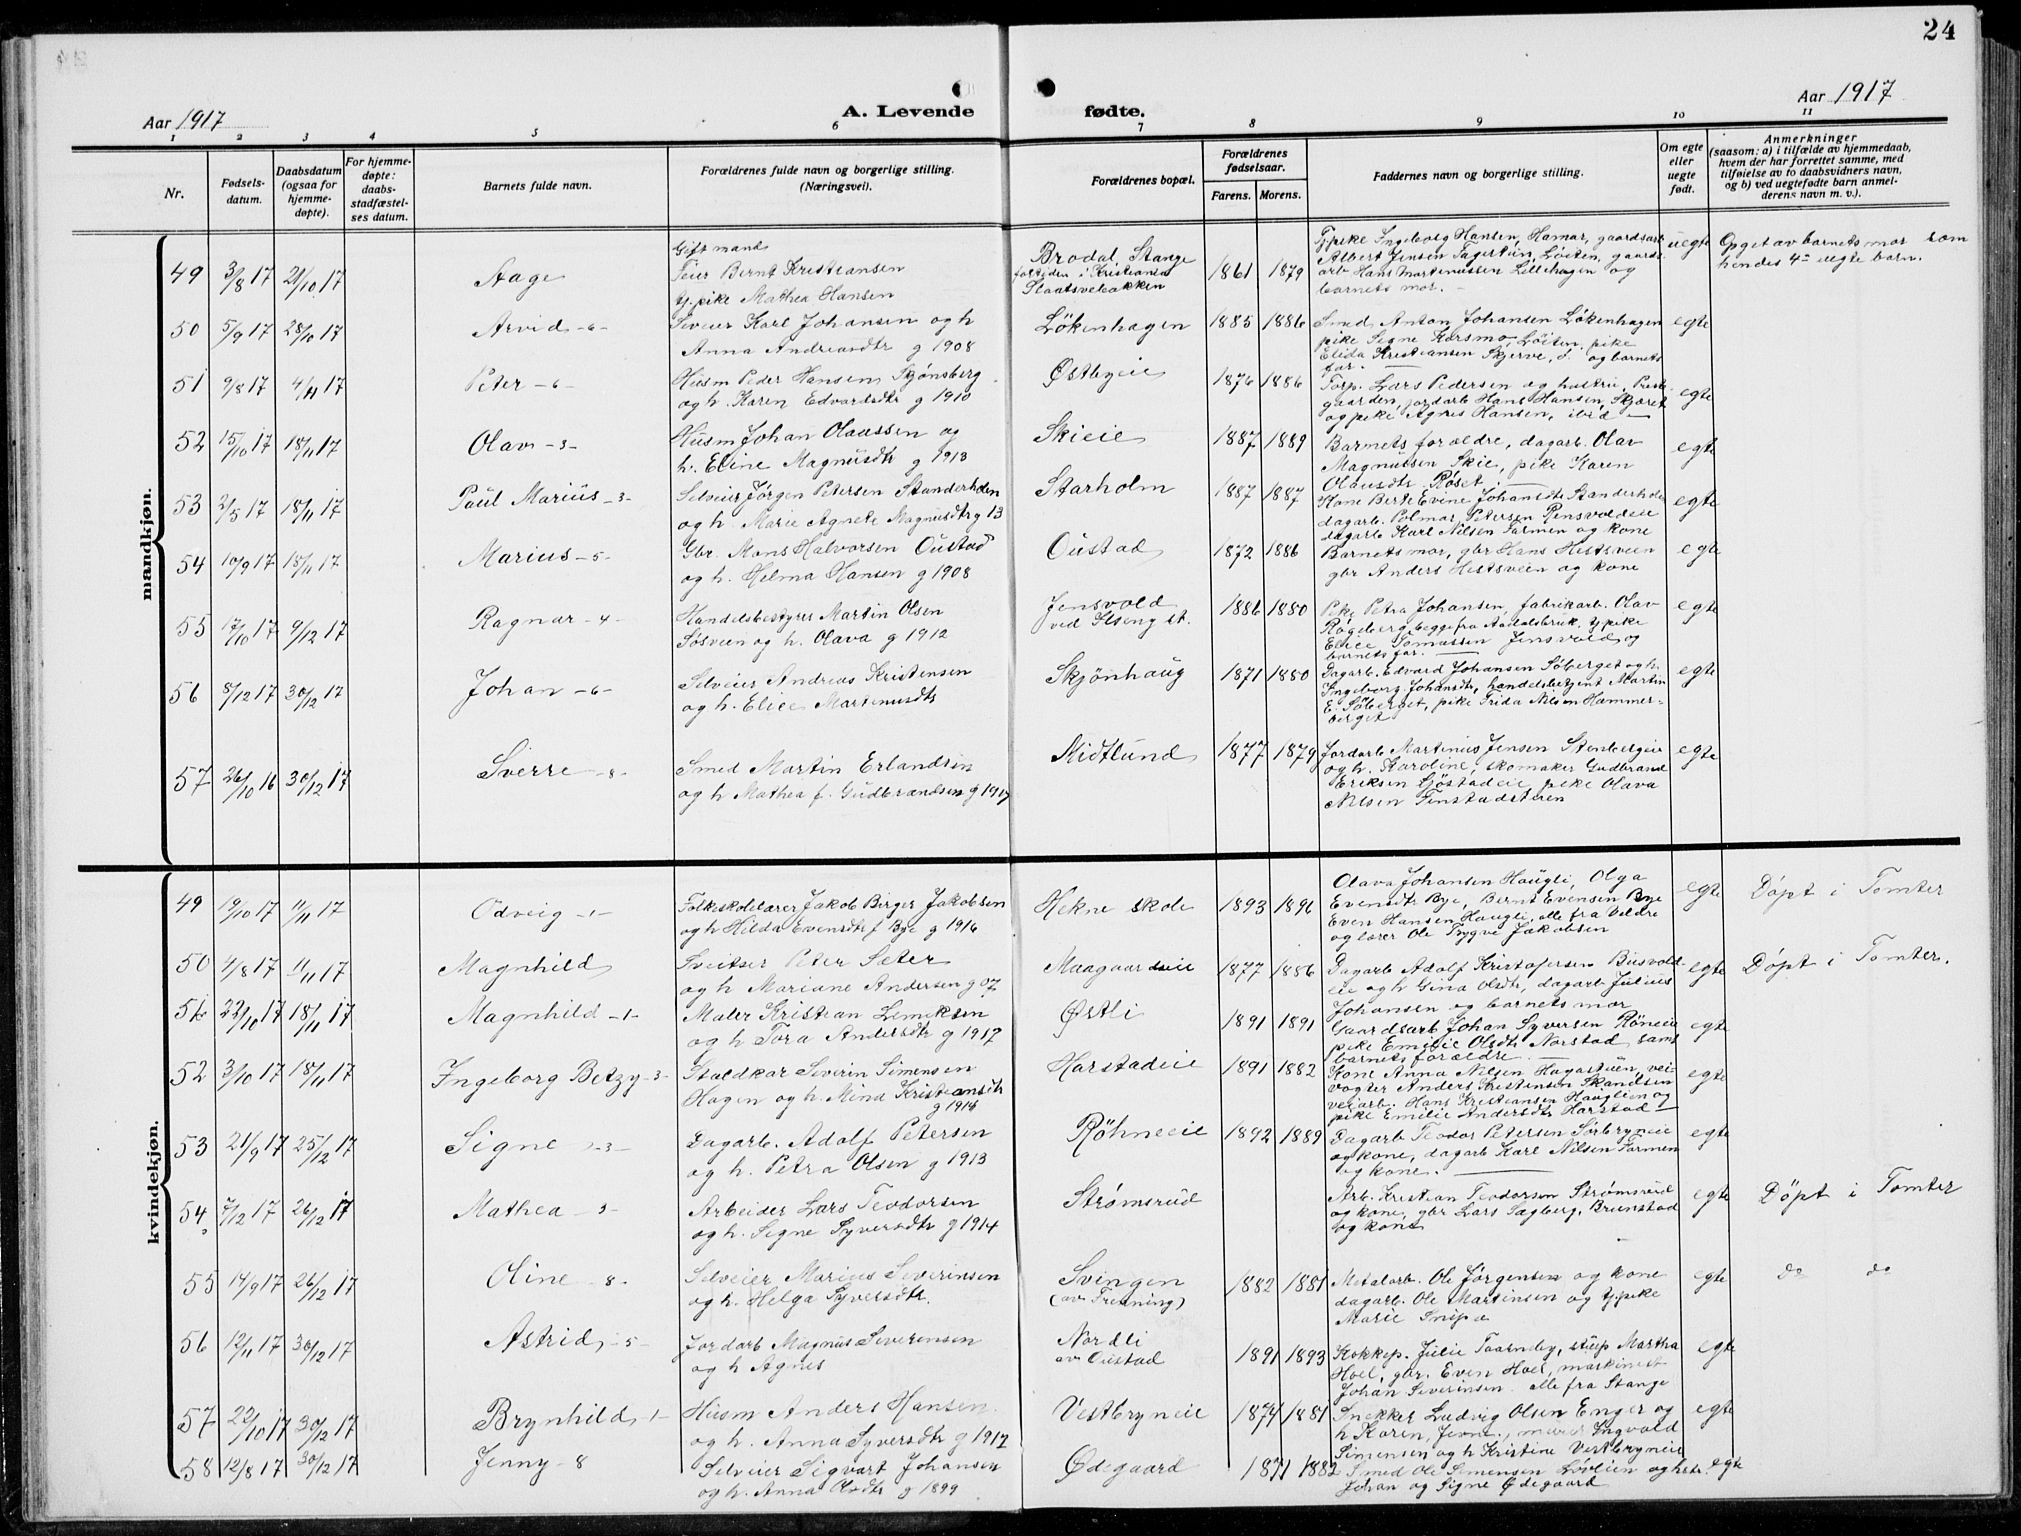 24
Aar 1917
A. Levende fødte.
Aar 1917
1 2 3 4 5 6 7 8 9 10 11
Nr.
Fødsels-
datum.
Daabsdatum
(ogsaa for
hjemme-
døpte).
For hjemme-
døpte:
daabs-
stadfæstel-
ses datum.
Barnets fulde navn.
Forældrenes fulde navn og borgerlige stilling.
(Næringsvei).
Forældrenes bopæl.
Forældrenes
fødselsaar.
Farens. Morens.
Faddernes navn og borgerlige stilling.
Om egte
eller
uegte
født.
Anmerkninger
(saasom: a) i tilfælde av hjemmedaab,
hvem der har forrettet samme, med
tilføielse av to daabsvidners navn,
og b) ved uegtefødte barn anmel-
derens navn m. v.).
mandkjøn.
49 3/8 17 21/10 17 Aage
Gift mand
Feier Bernt Kristiansen
tj. pike Mathea Hansen
Brodal, Stange
fortiden i Kristiania
1861 1879
Tj.pike Ingeborg Hansen, Hamar, gaardsarb
Albert Jensen Fagertun, Løiten, gaards
arb Hans Martinussen Lillehagen og
barnets mor. -
uegte
Opget av barnets mor som
hendes 4de uegte barn.
50 5/9 17 28/10 17 Arvid -6-
Selveier Karl Johansen og h
Anna Andreasdtr g 1908
Løkenhagen 1885 1886
Smed Anton Johansen Løkenhagen
pike Signe Korsmo, Løiten, pike
Elida Kristiansen Skjerve, og barnets
far. -
egte
51 9/8 17 4/11 17 Peter -6-
Husm Peder Hansen Tjønsberg
og h. Karen Edvardsdtr g 1910
Østbyeie 1876 1886
Torp. Lars Pedersen og hustru, Prest-
gaarden, jordarb Hans Hansen, Skjæret
og pike Agnes Hansen, ibid -
egte
52 15/10 17 18/11 17 Olav -3-
Husm Johan Olaussen og
h. Eline Magnusdtr g 1913
Skieie 1887 1889
Barnets forældre, dagarb. Olav
Magnussen Skie, pike Karen
Olausdtr Røset -
egte
53 2/5 17 18/11 17 Paul Marius -3-
Selveier Jørgen Petersen Standerholen
og h. Marie Agnete Magnusdtr g 13
Starholm 1887 1887
Kone Berte Evine Johansdtr Standerhole
dagarb. Polmar Petersen Rensvoldeie
dagarb Karl Nilsen Farmen og kone
egte
54 10/9 17 18/11 17 Marius -5-
Gbr. Mons Halvorsen Oustad
og h. Helma Hansen g 1908
Oustad 1872 1886
Barnets mor, gbr Hans Hestsveen
gbr Anders Hestsveen og kone
egte
55 17/10 17 9/12 17 Ragnar -4-
Handelsbestyrer Martin Olsen
Søsveen og h. Olava g 1912
Jensvold
ved Ilseng st.
1886 1880
Pike Petra Johansen, fabrikarb. Olav
Røgeberg, begge fra Aadalsbruk, tj pike
Elise Tomassen Jensvold og
barnets far. -
egte
56 8/12 17 30/12 17 Johan -6-
Selveier Andreas Kristensen
og h. Elise Martinusdtr
Skjønhaug 1871 1880
Dagarb. Edvard Johansen Søberget og h.
Ingeborg Johansdtr, handelsbetjent Martin
E. Søberget, pike Frida Nilsen Hammer-
berget
egte
57 26/10 16 30/12 17 Sverre -8-
Smed Martin Erlandsen
og h Mathea f. Gudbrandsen g 1917
Midtlund 1877 1879
Jordarb Martinus Jensen Stenbergeie
og h. Karoline, skomaker Gudbrand
Eriksen Gjøstadeie, pike Olava
Nilsen Finstadsteren
egte
kvindekjøn.
49 19/10 17 11/11 17 Odveig -1-
Folkeskolelærer Jakob Birger Jakobsen
og h Hilda Evensdtr f Bye g 1916
Hekne skole 1893 1896
Olava Johansen Haugli, Olga
Evensdtr Bye, Bernt Evensen Bye
Even Hansen Haugli, alle fra Veldre
og lærer Ole Trygve Jakobsen
egte Døpt i Tomter
50 4/8 17 11/11 17 Magnhild
Sveitser Peter Sæter
og h Mariane Andersen g 07
Maagaardseie 1877 1886
Dagarb Adolf Kristofersen Busvold-
eie og h Gina Olsdtr, dagarb Julius
Johansen og barnets mor
egte Døpt i Tomter.
51 22/10 17 18/11 17 Magnhild -1-
Maler Kristian Lemiksen
og h Tora Andersdtr g 1917
Østli 1891 1891
Gaardsarb Johan Syversen Røneie
pike Emilie Olsdtr Norstad samt
barnets forældre. -
egte
52 3/10 17 18/11 17 Ingeborg Betzy -3-
Staldkar Severin Simensen
Hagen og h. Mina Kristiansdtr
g 1914
Harstadeie 1891 1882
Kone Anna Nilsen Hagastuen, vei-
vogter Anders Kristensen Skanilsen
veiarb. Hans Kristiansen Hauglien og
pike Emilie Andersdtr Harstad -
egte
53 21/9 17 25/12 17 Signe -3-
Dagarb. Adolf Petersen
og h. Petra Olsen g 1913
Røhneeie 1892 1889
Dagarb Teodor Petersen Sørbryneie
og kone, dagarb Karl Nilsen Farmen
og kone. -
egte
54 7/12 17 26/12 17 Mathea -3-
Arbeider Lars Teodorsen
og h. Signe Syversdtr g 1914
Strømsrud
Arb. Kristian Teodorsen Strømsrud
og kone, gbr Lars Fagberg, Brunstad
og kone
egte Døpt i Tomter
55 14/9 17 26/12 17 Oline -8-
Selveier Marius Severinsen
og h. Helga Syversdtr.
Svingen
(av Frenning)
1882 1881
Metalarb. Ole Jørgensen og kone
dagarb. Ole Martinsen og tj.pike
Marie Snipa
egte do do
56 12/11 17 30/12 17 Astrid -5-
Jordarb Magnus Severensen
og h Agnes
Nordli
av Oustad
1891 1893
Kokkep. Julie Taarneby, stuep Martha
Hoel, gbr. Even Hoel, maskinist
Johan Severinsen alle fra Stange
egte
57 22/10 17 30/12 17 Brynhild -1-
Husm Anders Hansen
og h. Anna Syversdtr g 1917
Vestbryneie 1874 1881
Snekker Ludvig Olsen Enger og
h Karen, Jevne, Ingvald
Simensen og h Kristine Vestbryneie
egte
58 12/8 17 30/12 17 Jenny -8
Selveier Sigvart Johansen
og h. Anna Olsdtr g 1899
Ødegaard 1871 1882
Smed Ole Simensen Løvlien og hstr.
Johan og Signe Ødegaard
egte